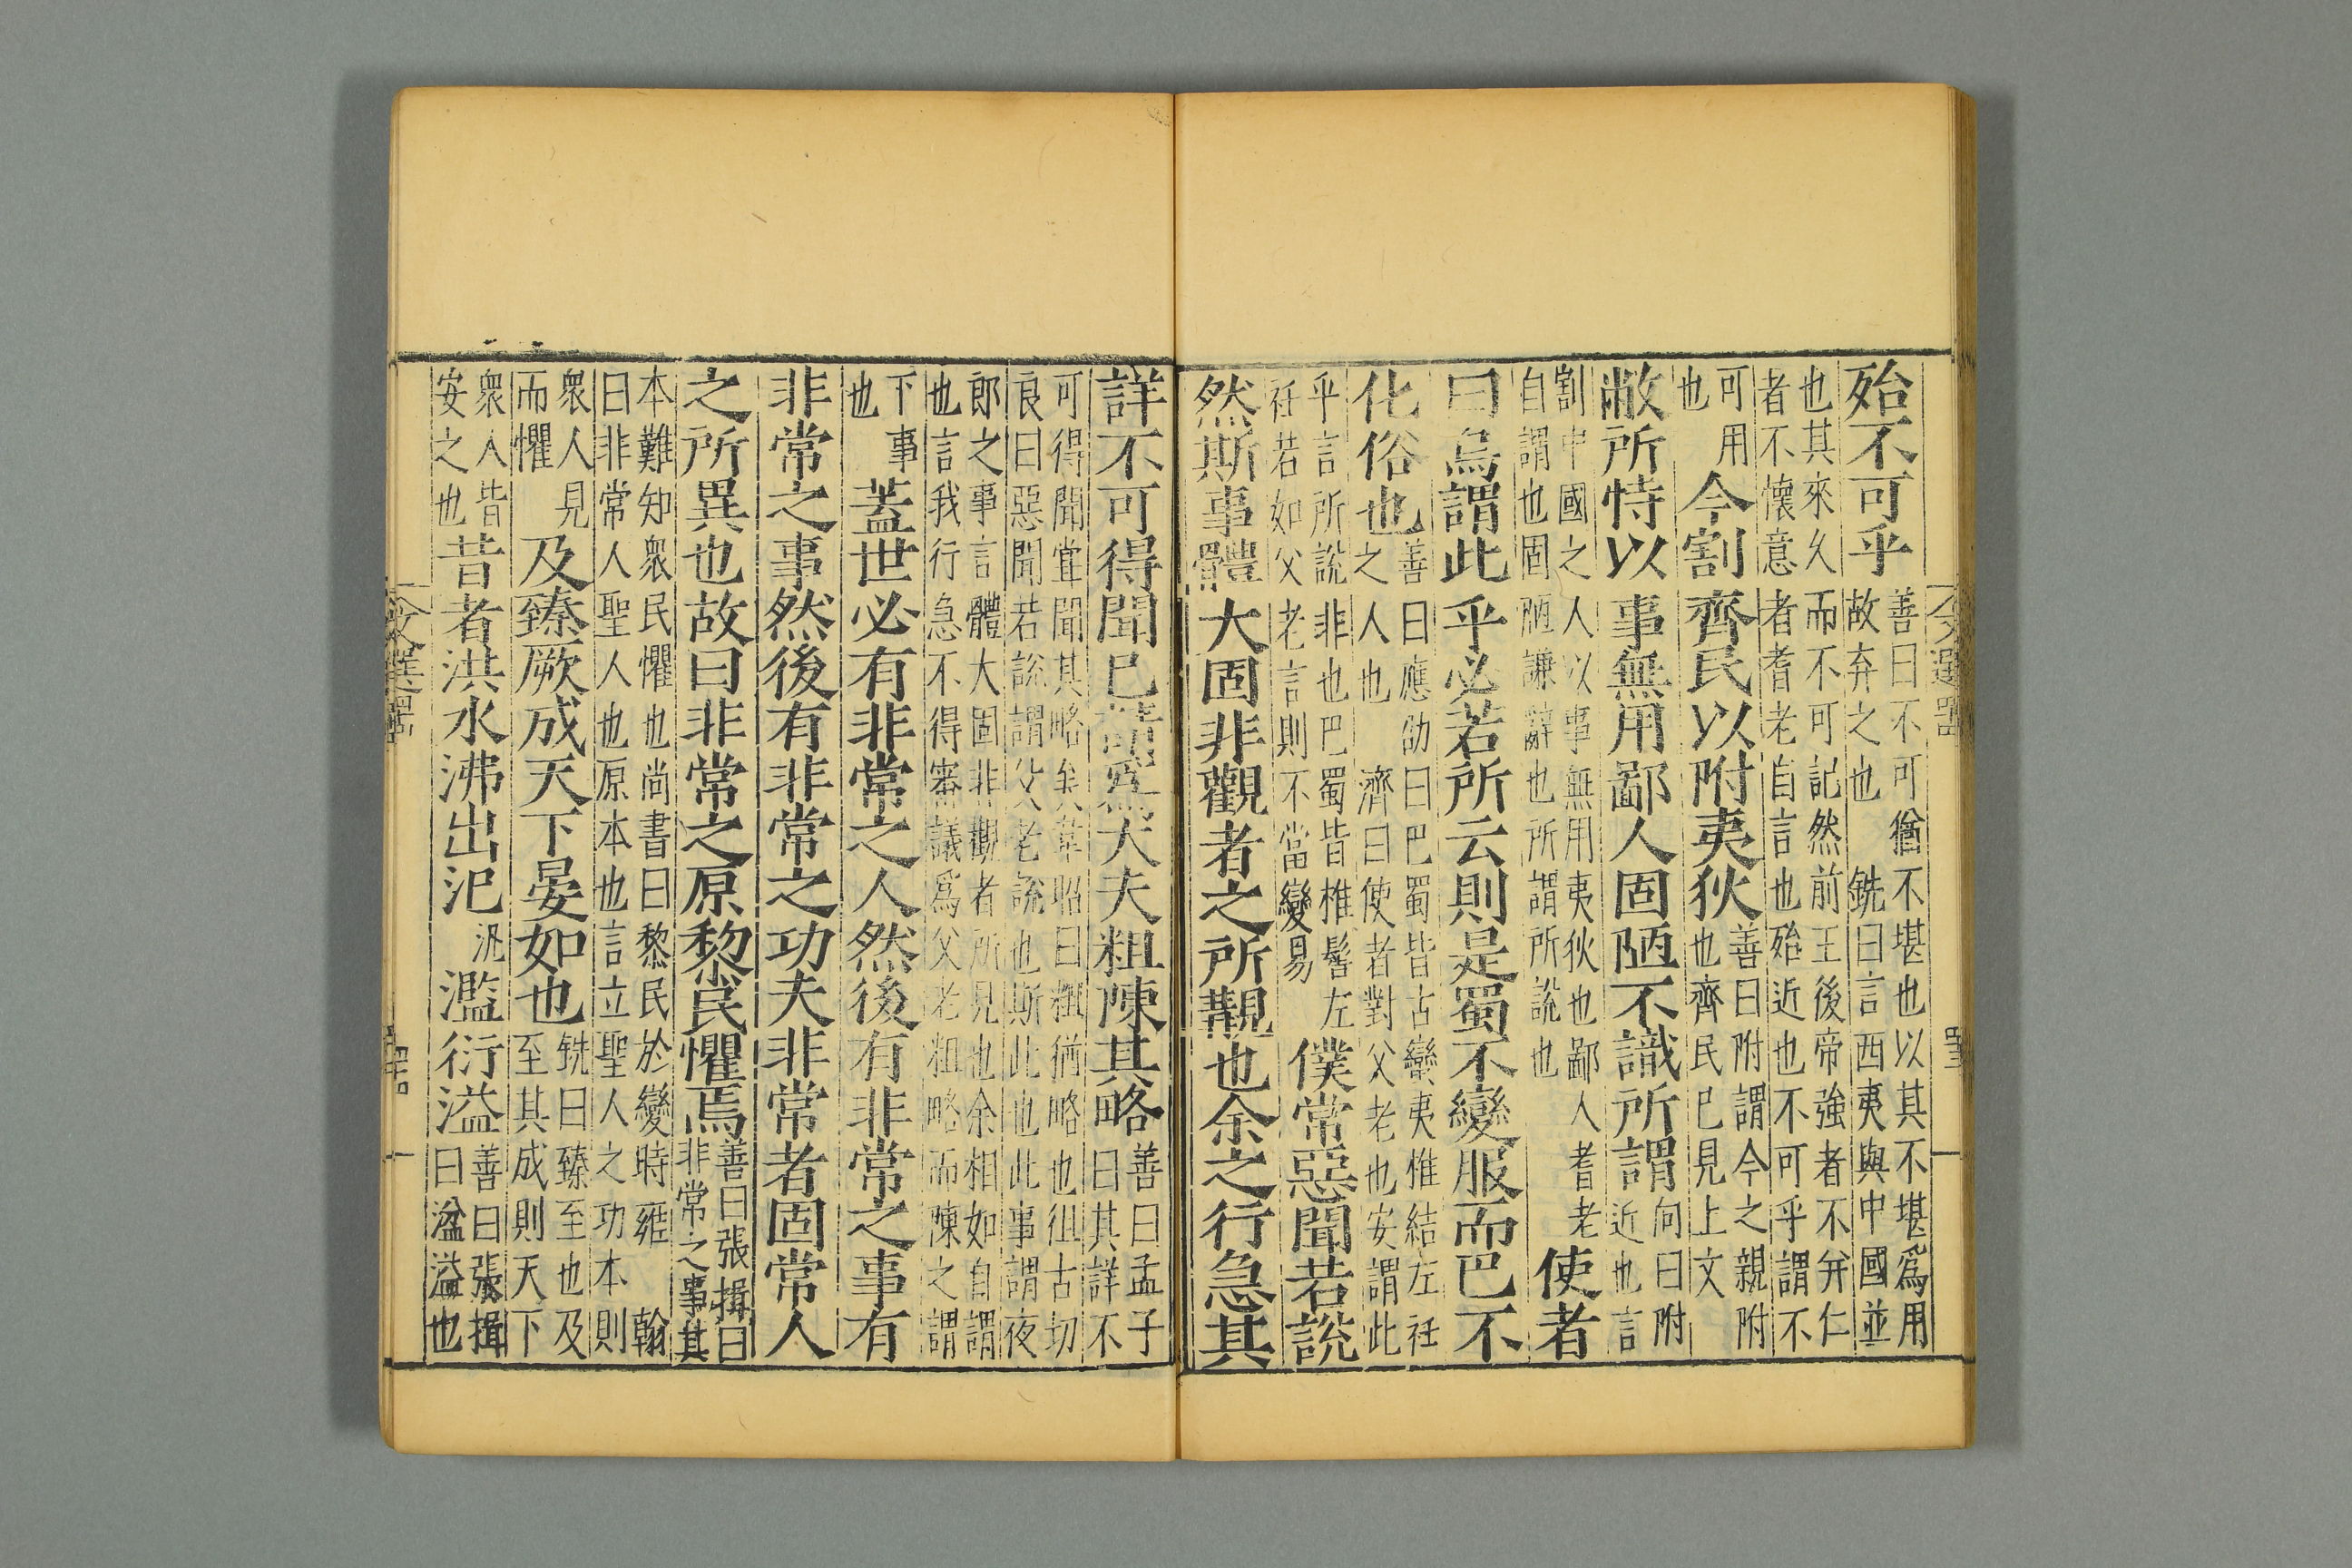 殆不可乎善曰不可猶不堪也以其不堪爲用
故弃之也 銑曰言西夷與中國並
也其來久而不可記然前王後帝強者不弁仁
者不懷意者耆老自言也殆近也不可乎謂不
可用
也今割齊民以附夷狄善曰附謂今之親附
也齊民已見上文
敝所恃以事無用鄙人固陋不識所謂向曰附
近也言
割中國之人以事無用夷狄也鄙人者耆老
自謂也固陋謙辭也所謂所說也使者
曰烏謂此乎必若所云則是蜀不變服而巴不
化俗也善曰應劭曰巴蜀皆古蠻夷椎結左衽
之人也 濟曰使者對父老也安謂此
乎言所說非也巴蜀皆椎髻左
衽若如父老言則不當變易僕常惡聞若說
然斯事體大固非觀者之所覯也余之行急其
詳不可得聞已請爲大夫粗陳其略善曰孟子
曰其詳不
可得聞甞聞其略矣韋昭曰粗猶略也徂古切
良曰惡聞若說謂父老說也斯此也此事謂夜
郎之事言體大固非觀者所見也余相如自謂
也言我行急不得審議爲父老粗略而陳之謂
下事
也蓋世必有非常之人然後有非常之事有
非常之事然後有非常之功夫非常者固常人
之所異也故曰非常之原黎民懼焉善曰張揖曰
非常之事其
本難知衆民懼也尚書曰黎民於變時雍 翰
曰非常人聖人也原本也言立聖人之功本則
衆人見
而懼及臻厥成天下晏如也銑曰臻至也及
至其成則天下
衆人皆
安之也昔者洪水沸出氾汎濫衍溢善曰張揖
曰溢溢也
文選